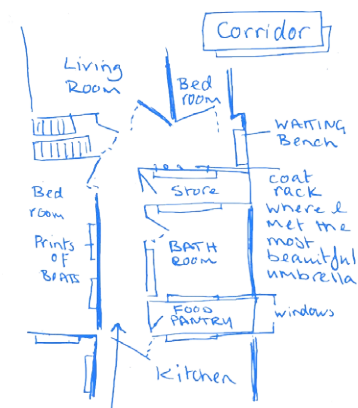 Corridor
Living
Room
Bed
room
WAITING
Bench
Store
coat
rack
where I
met the
most
beauitful
umbrella
Bed
room
Prints
OF
BOATS
BATH
ROOM
FOOD
PANTRY
windows
Kitchen